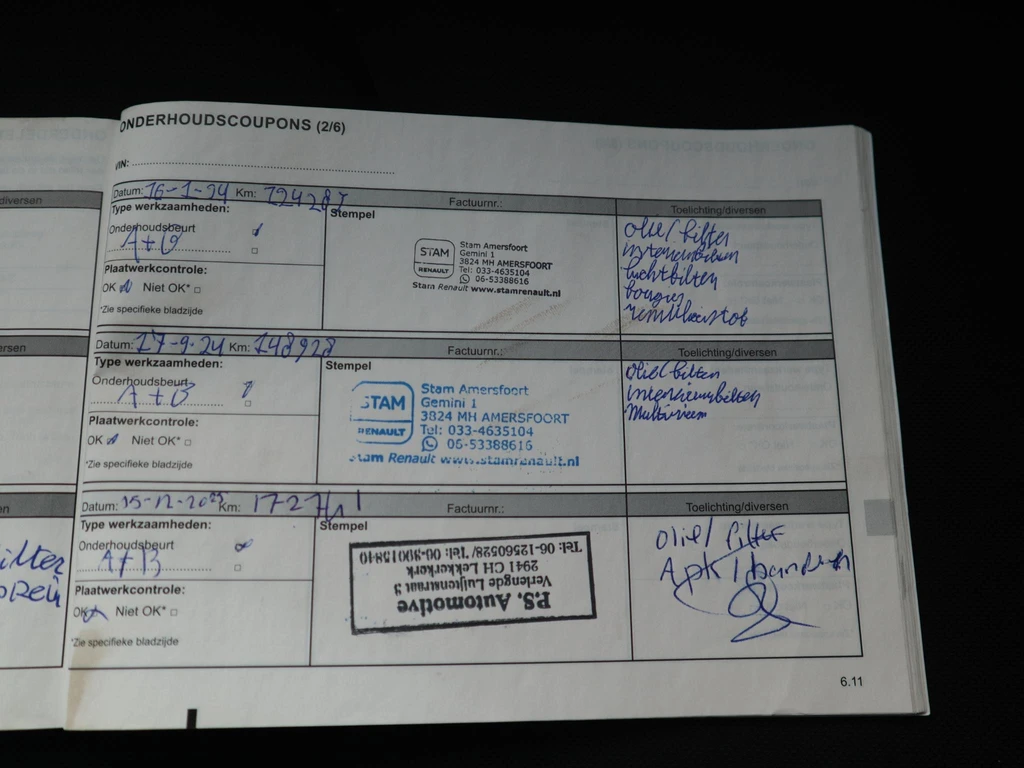 diversen
ersen
en
ilter
ONDERHOUDSCOUPONS (2/6)
VIN:
Datum: 16-1-24 Km: 124287 Factuurnr.: Toelichting/diversen
Type werkzaamheden:
Stempel
Onderhoudsbeurt
A+B
Plaatwerkcontrole:
OK Niet OK*
*Zie specifieke bladzijde
STAM
RENAULT
Stam Amersfoort
Gemini 1
3824 MH AMERSFOORT
Tel: 033-4635104
06-53388616
Stam Renault www.stamrenault.nl
olie/filter
interieurfilter
luchtfilter
bougies
remvloeistof
Datum: 17-9-24 Km: 148928 Factuurnr.: Toelichting/diversen
Type werkzaamheden:
Stempel
Onderhoudsbeurt
A+B
Plaatwerkcontrole:
OK Niet OK*
*Zie specifieke bladzijde
STAM
RENAULT
Stam Amersfoort
Gemini 1
3824 MH AMERSFOORT
Tel: 033-4635104
06-53388616
Stam Renault www.stamrenault.nl
olie/filter
interieurfilter
Multiriem
Datum: 15-12-2025 Km: 172 Factuurnr.: Toelichting/diversen
Type werkzaamheden:
Stempel
Onderhoudsbeurt
A+B
Plaatwerkcontrole:
OK Niet OK*
*Zie specifieke bladzijde
P.S. Automotive
Verlengde Luijtenstraat 3
2941 CH Lekkerkerk
Tel: 06-12560528/ Tel: 06-30015840
olie/filter
Apk/banden
6.11